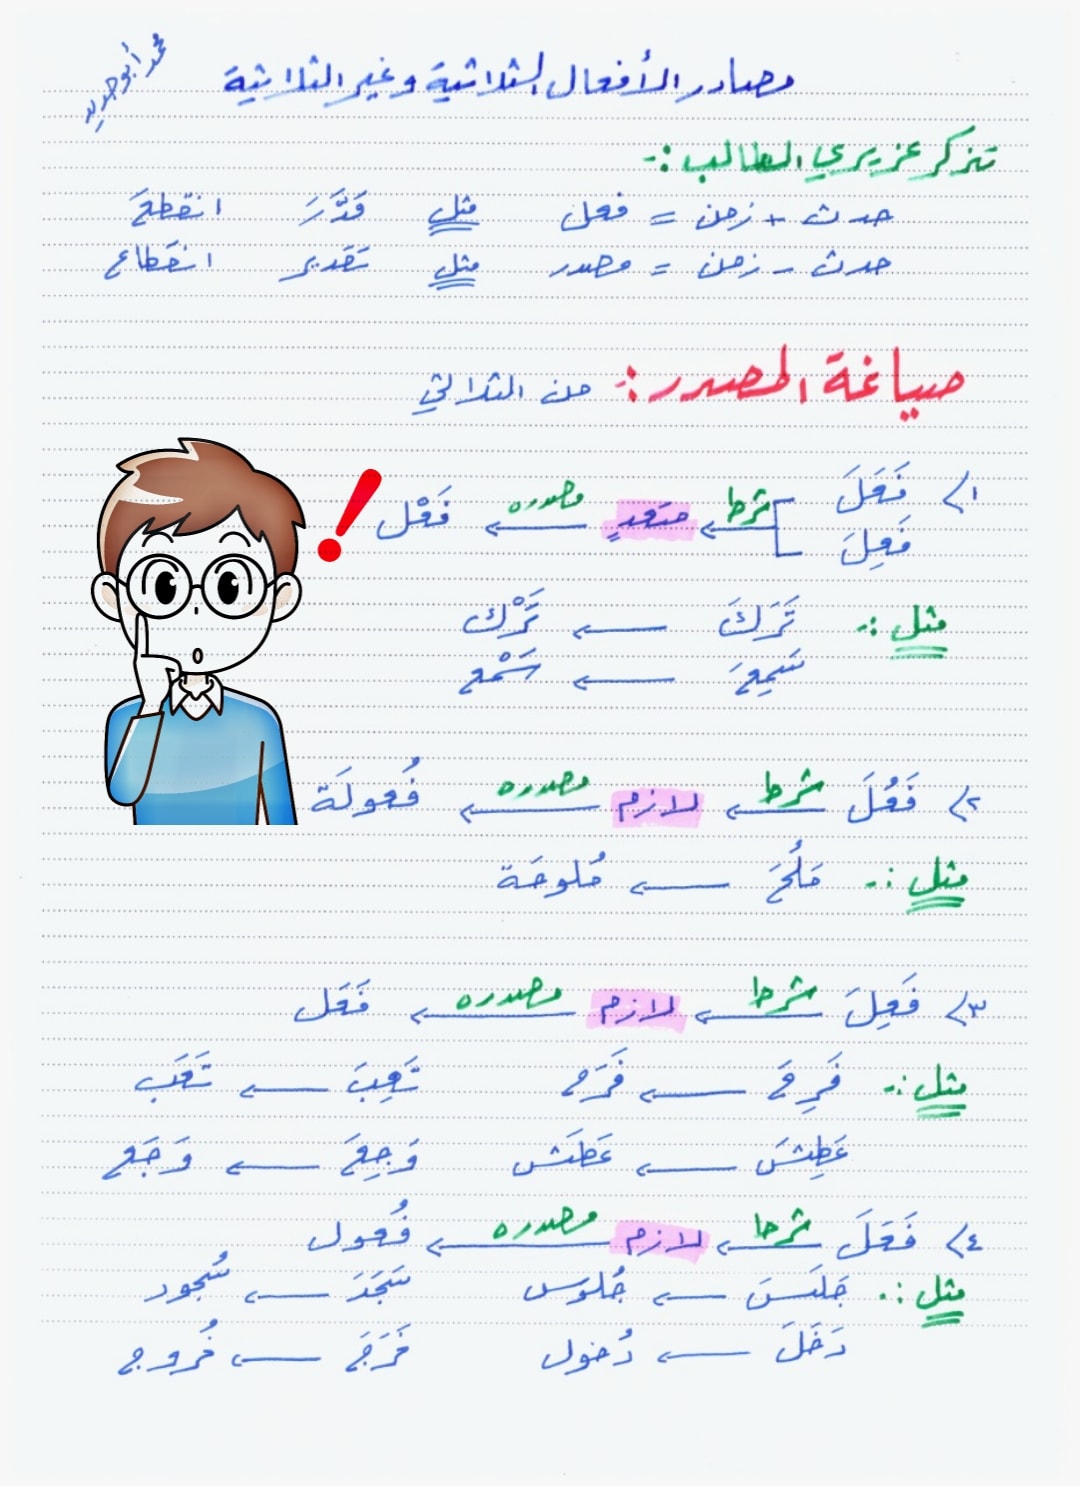 محمد أبو حديد
مصادر الأفعال الثلاثية وغير الثلاثية
تذكر عزيزي الطالب :-
حدث + زمن = فعل مثل قَدَّرَ انقطعَ
حدث - زمن = مصدر مثل تقدير انقطاع
صياغة المصدر :- من الثلاثي
١> فَعَلَ
فَعِلَ شرط متعدٍ مصدره فَعْل
مثل :- تَرَكَ ← تَرْك
سَمِعَ ← سَمْع
٢> فَعُلَ شرط لازم مصدره فُعولَة
مثل :- مَلُحَ ← مُلوحَة
٣> فَعِلَ شرط لازم مصدره فَعَل
مثل :- فَرِحَ ← فَرَح تَعِبَ ← تَعَب
عَطِشَ ← عَطَش وَجِعَ ← وَجَع
٤> فَعَلَ شرط لازم مصدره فُعول
مثل :- جَلَسَ ← جُلوس سَجَدَ ← سُجود
دَخَلَ ← دُخول خَرَجَ ← خُروج